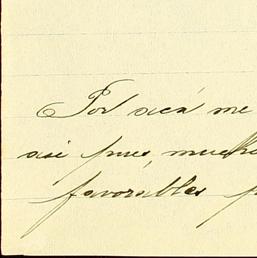 Por acá me
así pues, muchos
favorables p